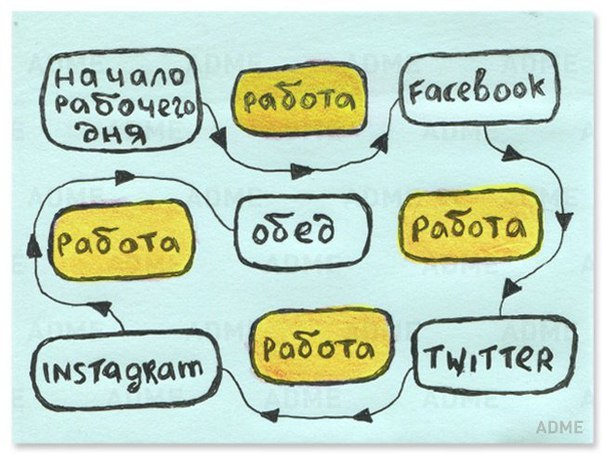 Начало
рабочего
дня
работа
Facebook
работа
обед
работа
INSTAGRAM
работа
TWITTER
ADME